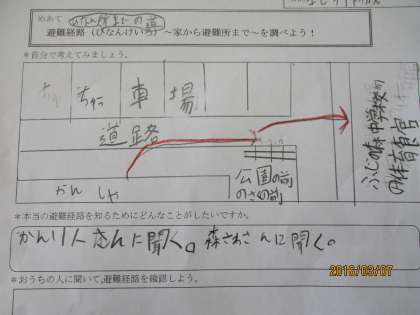 めあて ひなん所までの道
避難経路(ひなんけいろ)~家から避難所まで~を調べよう!
*自分で考えてみましょう。
ちゅう車場
道路
公園の前
のさくの前
かんしゃ
ふじの森中学校の
体育官
*本当の避難経路を知るためにどんなことがしたいですか。
かんり人さんに聞く。森さわさんに聞く。
*おうちの人に聞いて,避難経路を確認しよう。
2016/03/07